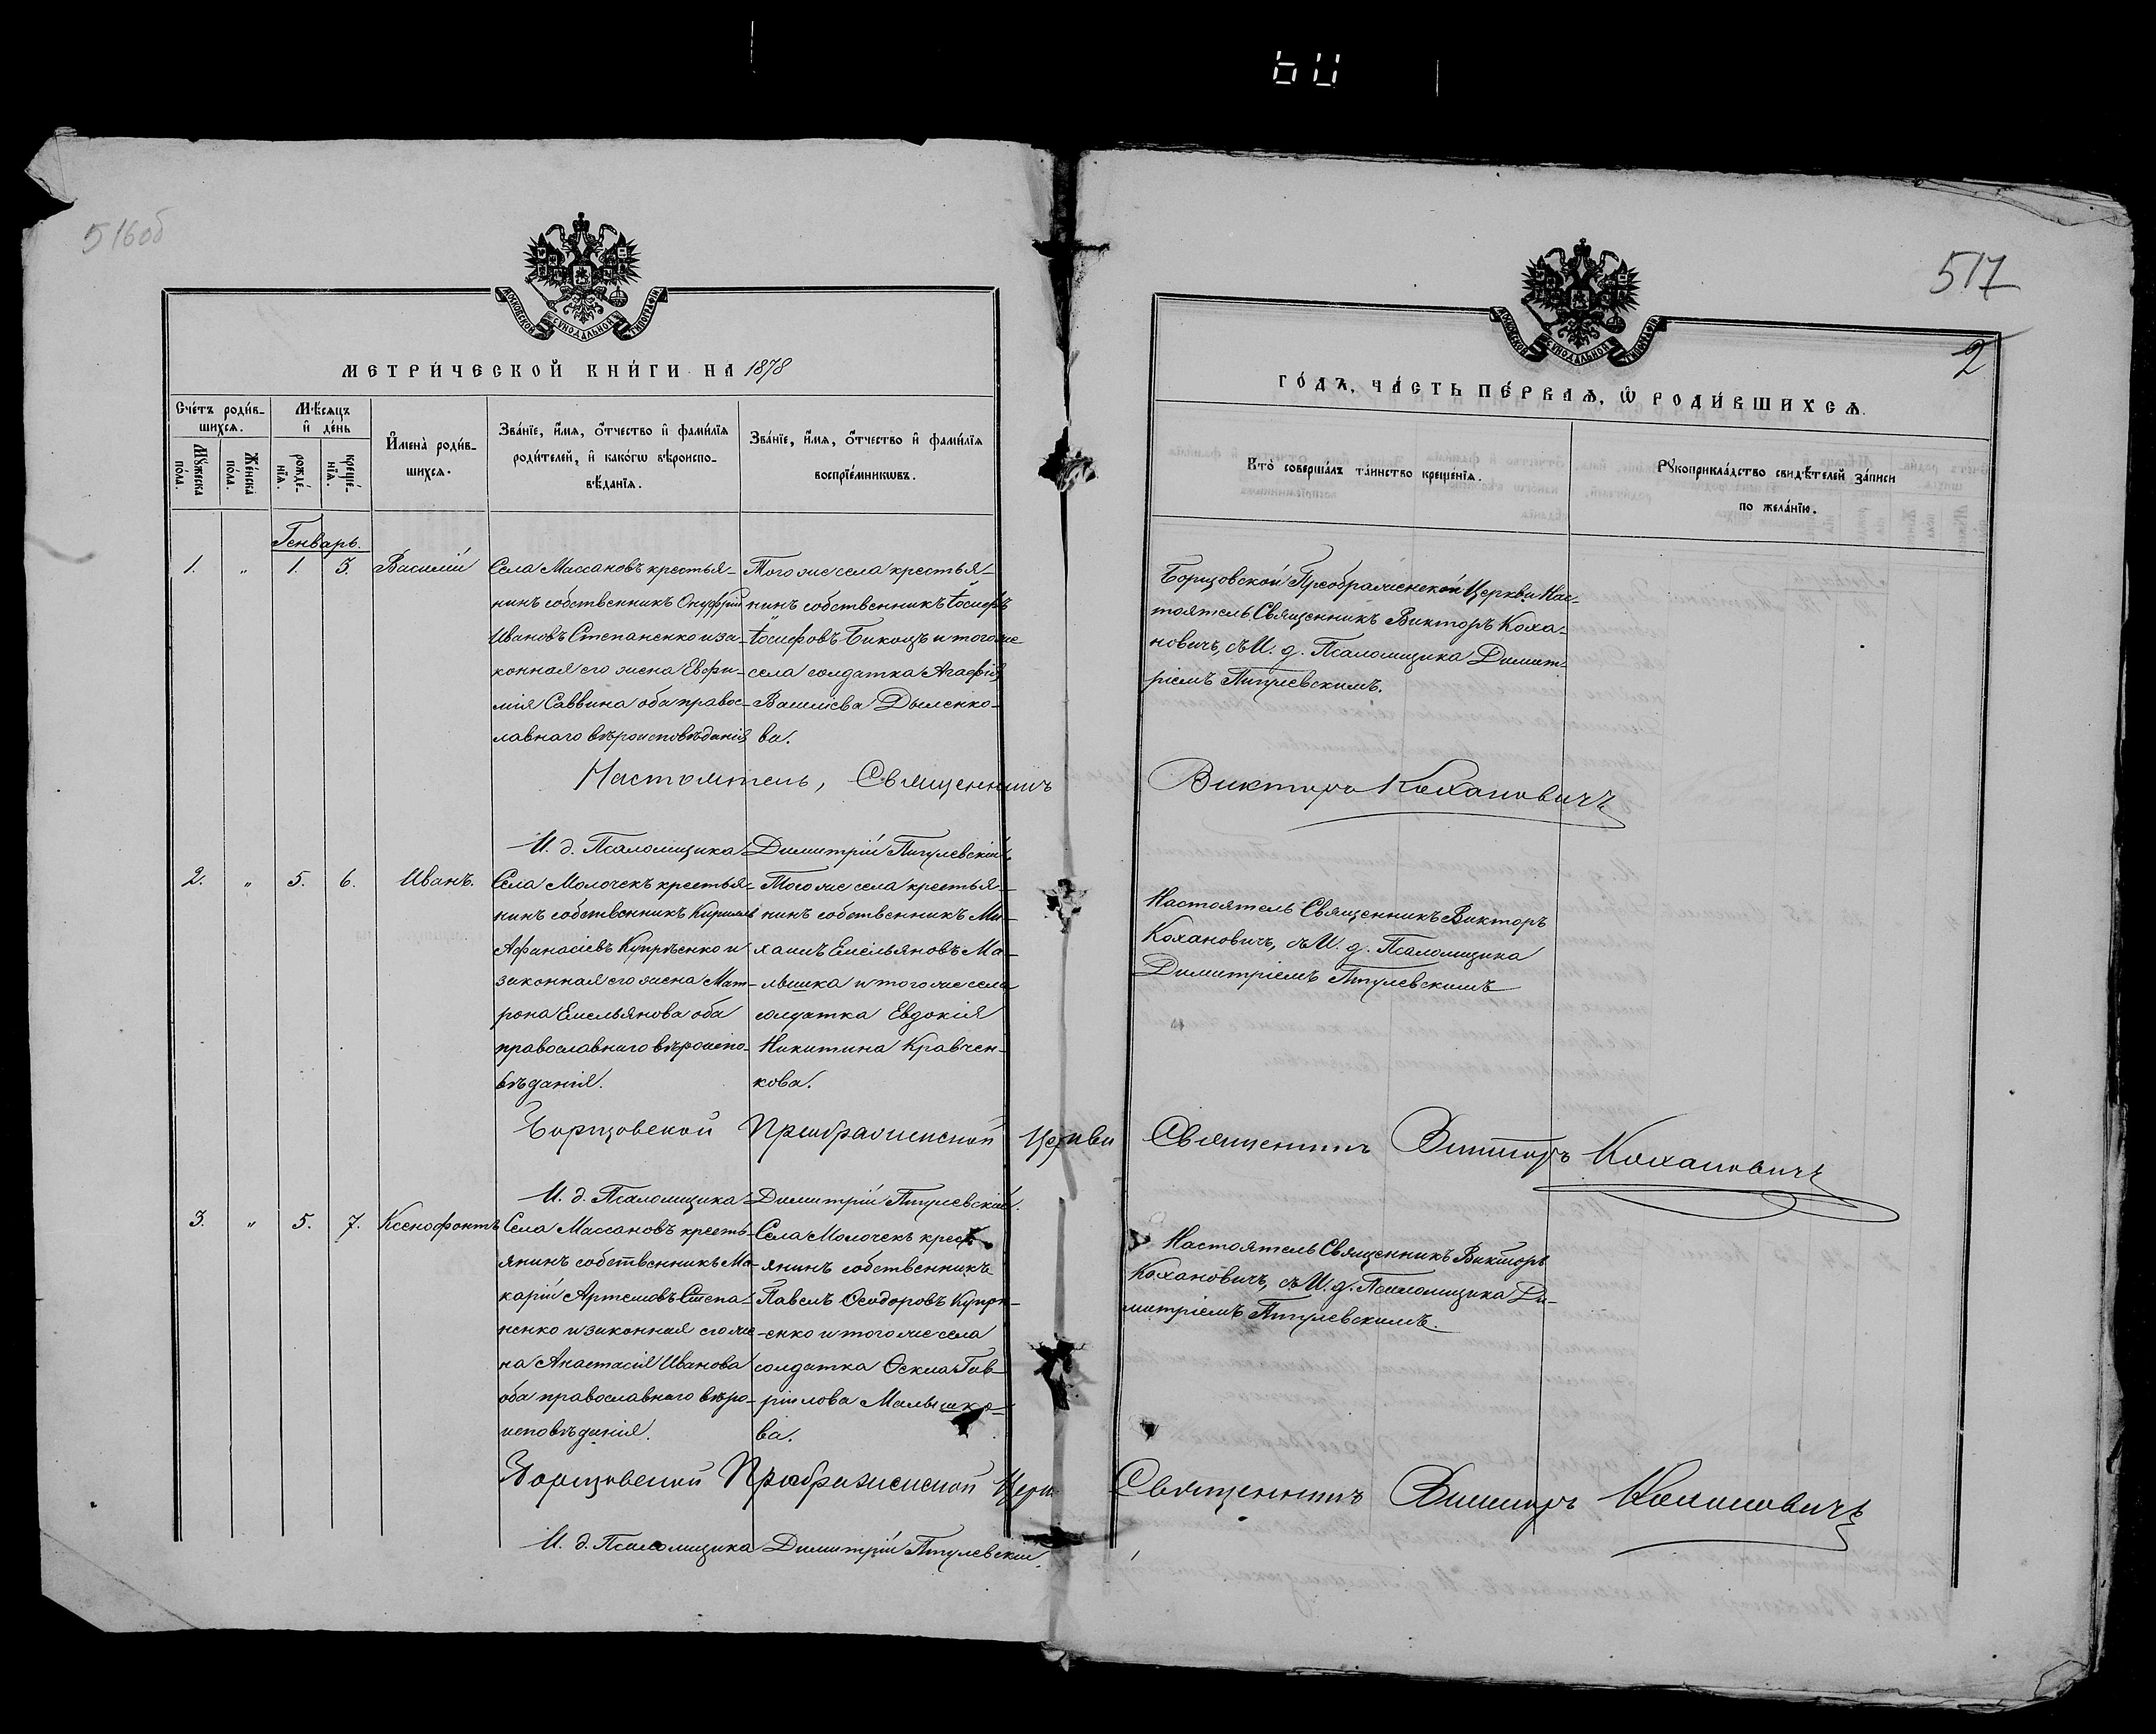 516об
МОСКОВСКОЙ СѴНОДАЛЬНОЙ ТИПОГРАФІИ
МЕТРИ́ЧЕСКОЙ КНИ́ГИ НА 1878
Сче́тъ роди́в-
шихсѧ.
Мѣ́сѧцъ
и҆ де́нь
Мꙋ́жеска
по́ла.
Же́нска
по́ла.
рожде́-
нїѧ.
креще́-
нїѧ.
И҆мена̀ роди́в-
шихсѧ.
Зва́нїе, и҆́мѧ, ѻ҆́тчество и҆ фами́лїѧ
роди́телей, и҆ како́гѡ вѣроиспо-
вѣ́данїѧ.
Зва́нїе, и҆́мѧ, ѻ҆́тчество и҆ фами́лїѧ
воспрїе́мникѡвъ.
Генварь.
1. " 1. 3. Василій
Села Массановъ крестья-
нинъ собственникъ Онуфрій
Ивановъ Степаненко и за-
конная его жена Евфи-
мія Саввина оба правос-
лавнаго вѣроисповѣданія
Того же села крестья-
нинъ собственникъ Іосифъ
Іосифовъ Бикоцъ и того же
села солдатка Агафія
Василіева Дыленко-
ва.
Настоятель, Священникъ
И. д. Псаломщика Димитрій Пигулевскій
2. " 5. 6. Иванъ.
Села Молочекъ крестья-
нинъ собственникъ Кириллъ
Афанасіевъ Купріенко и
законная его жена Мат-
рона Емельянова оба
православнаго вѣроиспо-
вѣданія.
Того же села крестья-
нинъ собственникъ Ми-
хаилъ Емельяновъ Ма-
лышка и того же села
солдатка Евдокія
Никитина Кравчен-
кова.
Борщовской Преображенской Церкви
И. д. Псаломщика Димитрій Пигулевскій.
3. " 5. 7. Ксенофонтъ
Села Массановъ кресть-
янинъ собственникъ Ма-
карій Артемовъ Степа-
ненко и законная его же-
на Анастасія Иванова
оба православнаго вѣро-
исповѣданія.
Села Молочекъ кресть-
янинъ собственникъ
Павелъ Ѳеодоровъ Купрі-
-енко и того же села
солдатка Ѳекла Гав-
ріилова Малышко-
ва.
Борщовской Преображенской Церк
И. д. Псаломщика Димитрій Пигулевскій.
517
2
МОСКОВСКОЙ СѴНОДАЛЬНОЙ ТИПОГРАФІИ
ГО́ДЪ, ЧА́СТЬ ПЕ́РВАѦ, Ѡ҆ РОДИ́ВШИХСѦ.
Кто̀ соверша́лъ та́инство креще́нїѧ.
Рꙋкоприкла́дство свидѣ́телей за́писи
по жела́нїю.
Борщовской Преображенской Церкви Нас-
тоятель Священникъ Викторъ Коха-
новичъ, съ И. д. Псаломщика Димит-
ріемъ Пигулевскимъ.
Викторъ Кохановичъ
Настоятель Священникъ Викторъ
Кохановичъ, съ И. д. Псаломщика
Димитріемъ Пигулевскимъ
Священникъ Викторъ Кохановичъ
Настоятель Священникъ Викторъ
Кохановичъ, съ И. д. Псаломщика Ди-
митріемъ Пигулевскимъ.
Священникъ Викторъ Кохановичъ